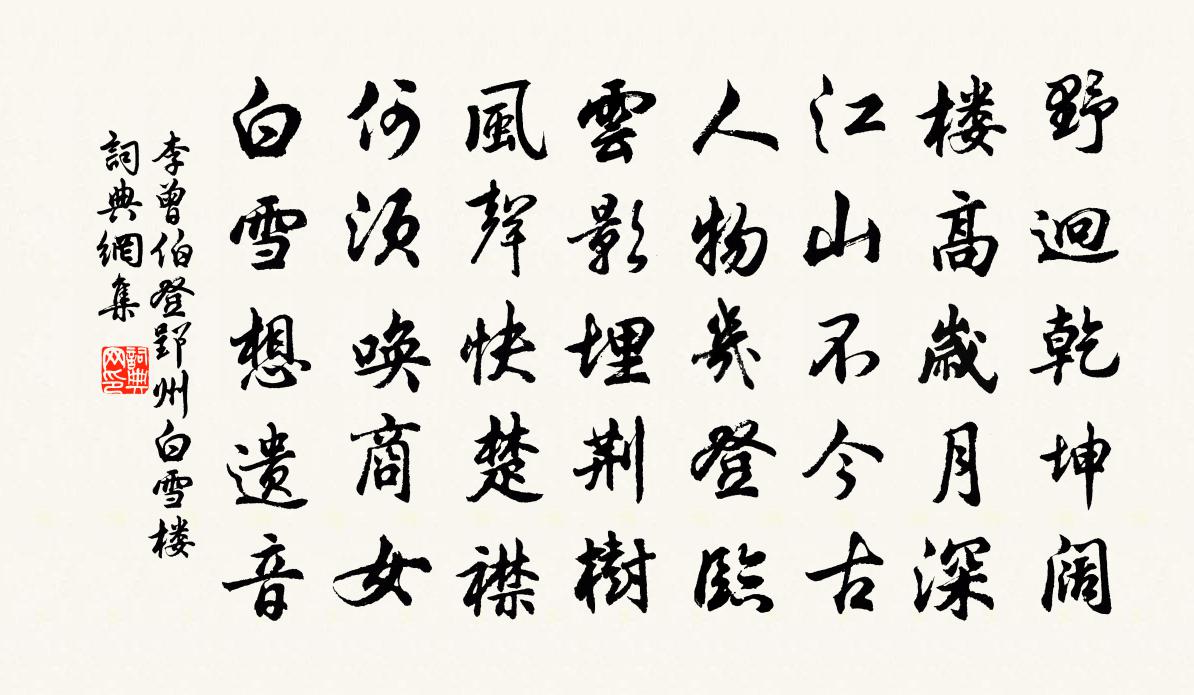 野迥乾坤阔
楼高歲月深
江山不今古
人物幾登臨
雲影埋荆樹
風聲快楚襟
何須唤商女
白雪想遗音
李曾伯登郢州白雪楼
詞典網集
詞典
网印